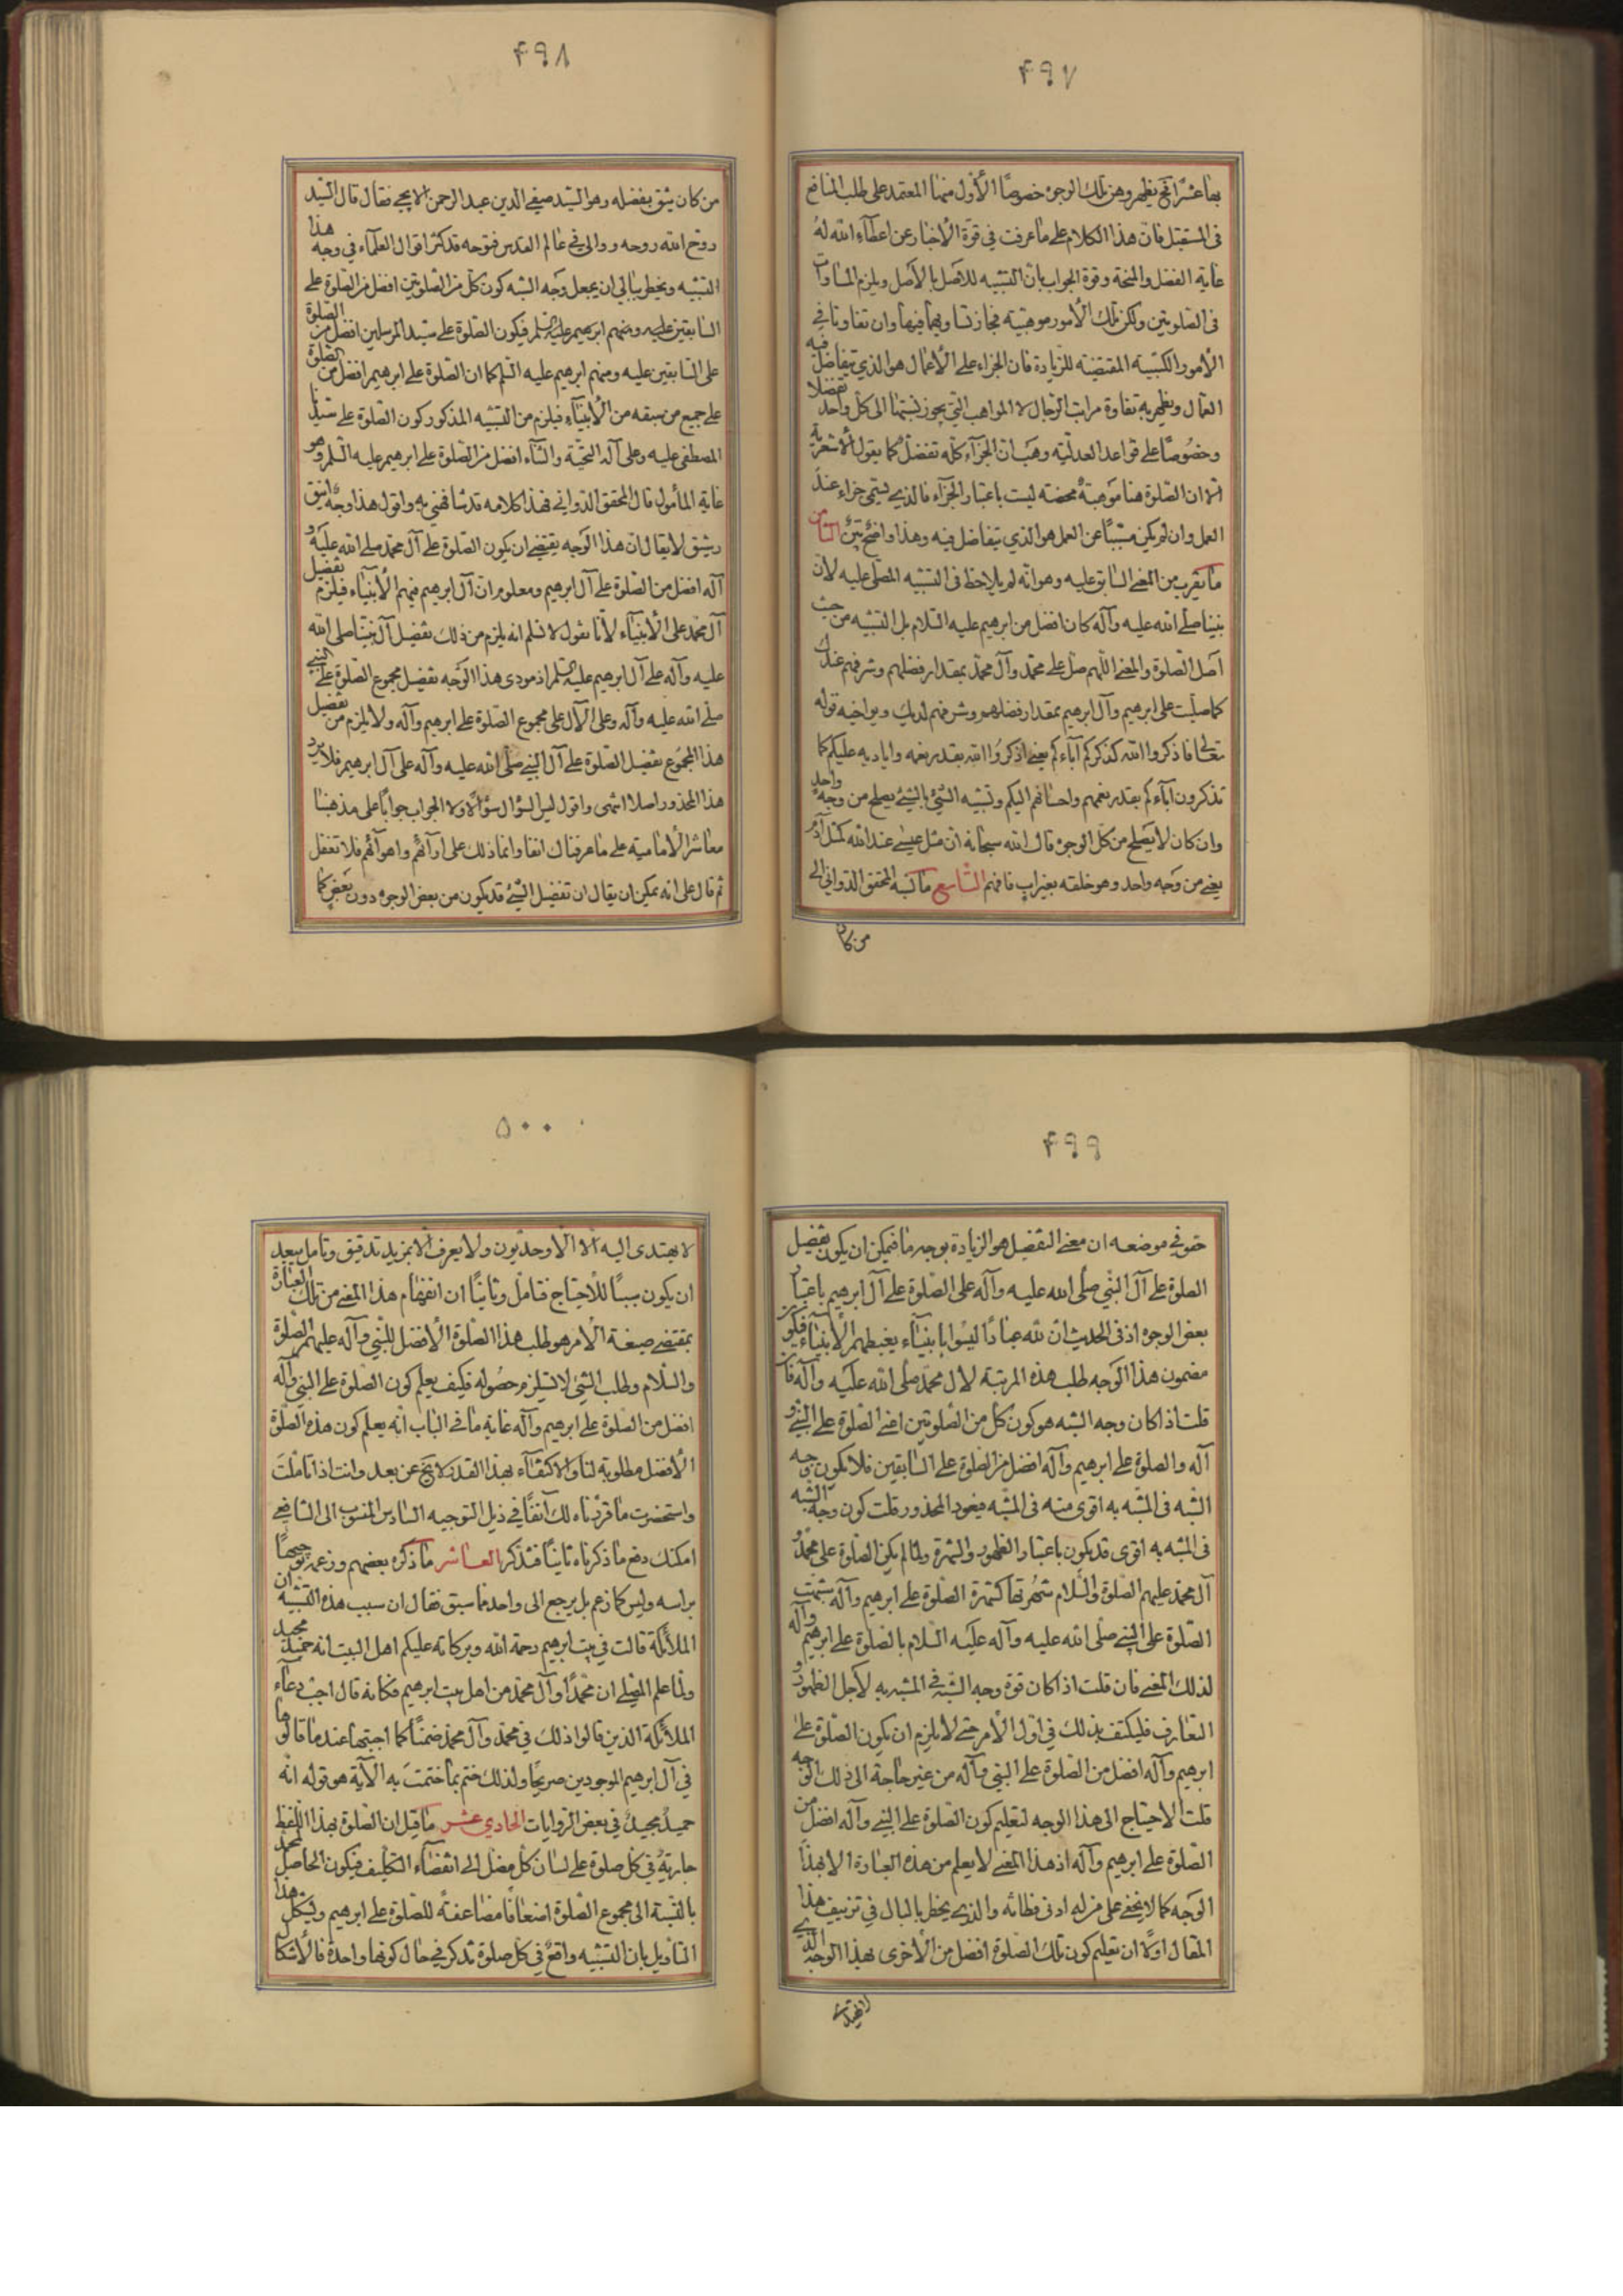 ۴۹۷
بها عشرًا نجح يظهر وهن تلك الوجوه خصوصًا الأول منها المعتمد على طلب المنافع
فى المستقبل فان هذا الكلام على ما عرفت في قوة الأخبار عن اعطآء الله له
غاية الفضل والمنحة وقوة الجواب بان التشبيه للاصل بالأصل ويلزم المساوات
فى الصلوتين ولكن تلك الأمور موهبية فجاز تساويهما فيها وان تفاوتا في
الأمور الكسبية المقتضية للزيادة فان الجزاء على الأعمال هو الذي يتفاضل فيه
العمال ويظهر به تفاوة مراتب الرجال لا المواهب التي يجوز نسبتها الى كل واحد تفضلا
وخصوصًا على قواعد العدلية وهب ان الجزآء كله تفضل كما يقول الأشعرية
الا ان الصلوة هنا موهبة محضة ليست باعتبار الجزآء فالذي يسمى جزاء عند
العمل وان لم يكن مسببًا عن العمل هو الذي يتفاضل فيه وهذا واضح بيّن الثامن
ما يقرب من المعنى السابق عليه وهو انه لم يلاحظ فى التشبيه المصلى عليه لان
نبينا صلى الله عليه وآله كان افضل من ابرهيم عليه السلام بل التشبيه من حيث
اصل الصلوة والمعنى اللهم صل على محمد وآل محمد بمقدار فضلهم وشرفهم عندك
كما صليت على ابرهيم وآل ابرهيم بمقدار فضلهم وشرفهم لديك ويواخيه قوله
تعالى فاذكروا الله كذكركم آبآءكم يعنى اذكروا الله بقدر نعمه واياديه عليكم كما
تذكرون آبآءكم بقدر نعمهم واحسانهم اليكم وتشبيه الشئ بالشئ يصلح من وجه واحد
وان كان لا يصلح من كل الوجوه قال الله سبحانه ان مثل عيسى عند الله كمثل آدم
يعنى من وجه واحد وهو خلقه بغير اب فافهم التاسع ما نسبه المحقق الدوانى الى
من كان
۴۹۸
من كان يثق بفضله وهو السيد صفي الدين عبد الرحمن الايجي فقال قال السيد
روح الله روحه ووالى فى عالم القدس فتوحه قد كثر اقوال العلمآء في وجه هذا
التشبيه ويخطر ببالى ان يجعل وجه الشبه كون كل من الصلوتين افضل من الصلوة على
السابقين عليه ومنهم ابرهيم عليه السلم فيكون الصلوة على سيد المرسلين افضل من الصلوة
على السابقين عليه ومنهم ابرهيم عليه السلم كما ان الصلوة على ابرهيم افضل من الصلوة
على جميع من سبقه من الأنبيآء فيلزم من التشبيه المذكور كون الصلوة على سيدنا
المصطفى عليه وعلى آله التحية والثنآء افضل من الصلوة على ابرهيم عليه السلم وهو
غاية المأمول قال المحقق الدوانى فهذا كلامه قد شافهني به واقول هذا وجه انيق
رشيق لا يقال ان هذا الوجه يقتضى ان يكون الصلوة على آل محمد صلى الله عليه و
آله افضل من الصلوة على آل ابرهيم ومعلوم ان آل ابرهيم فيهم الأنبيآء فيلزم تفضيل
آل محمد على الأنبيآء لأنا نقول لا نسلم انه يلزم من ذلك تفضيل آل نبينا صلى الله
عليه وآله على آل ابرهيم عليه السلم اذ مودى هذا الوجه تفضيل مجموع الصلوة على النبى
صلى الله عليه وآله وعلى الآل على مجموع الصلوة على ابرهيم وآله ولا يلزم من تفضيل
هذا المجموع تفضيل الصلوة على آل النبى صلى الله عليه وآله على آل ابرهيم فلا يرد
هذا المحذور اصلا انتهى واقول ليس السؤال سؤالًا ولا الجواب جوابًا على مذهبنا
معاشر الأمامية على ما عرفناك انفا وانما ذلك على ارآئهم واهوآئهم فلا تغفل
ثم قال على انه يمكن ان يقال ان تفضيل الشئ قد يكون من بعض الوجوه دون بعض كما
۴۹۹
حقق في موضعه ان معنى التفضيل هو الزيادة بوجه ما فيمكن ان يكون تفضيل
الصلوة على آل النبي صلى الله عليه وآله على الصلوة على آل ابرهيم باعتبار
بعض الوجوه اذ فى الحديث ان لله عبادًا ليسوا بانبيآء يغبطهم الأنبيآء فيكون
مضمون هذا الوجه طلب هذه المرتبة لال محمد صلى الله عليه وآله فان
قلت اذا كان وجه الشبه هو كون كل من الصلوتين اعنى الصلوة على النبى و
آله والصلوة على ابرهيم وآله افضل من الصلوة على السابقين فلا يكون وجه
الشبه فى المشبه به اقوى منه فى المشبه فيعود المحذور قلت كون وجه الشبه
فى المشبه به اقوى قد يكون باعتبار الظهور والشهرة ولما لم يكن الصلوة على محمد و
آل محمد عليهم الصلوة والسلام شهرتها كشهرة الصلوة على ابرهيم وآله شبهت
الصلوة على النبى صلى الله عليه وآله عليه السلام بالصلوة على ابرهيم وآله
لذلك المعنى فان قلت اذا كان قوة وجه الشبه فى المشبه به لأجل الظهور و
التعارف فليكتف بذلك في اول الأمر حتى لا يلزم ان يكون الصلوة على
ابرهيم وآله افضل من الصلوة على النبى وآله من غير حاجة الى ذلك الوجه
قلت الاحتياج الى هذا الوجه لتعليم كون الصلوة على النبى وآله افضل من
الصلوة على ابرهيم وآله اذ هذا المعنى لا يعلم من هذه العبارة الا بهذا
الوجه كما لا يخفى على من له ادنى فطانه والذى يخطر بالبال في تزييف هذا
المقال اولًا ان تعليم كون تلك الصلوة افضل من الأخرى بهذا الوجه الذى
۵۰۰
لا يهتدى اليه الا الأوحديون ولا يعرف الا بمزيد تدقيق وتامل يبعد
ان يكون سببًا للاحتياج فتامل وثانيًا ان انفهام هذا المعنى من تلك العبارة
بمقتضى صيغة الأمر هو طلب هذا الصلوة الأفضل للنبى وآله عليهم الصلوة
والسلام وطلب الشئ لا يستلزم حصوله فكيف يعلم كون الصلوة على النبى وآله
افضل من الصلوة على ابرهيم وآله غاية ما فى الباب انه يعلم كون هذه الصلوة
الأفضل مطلوبة لنا والاكتفآء بهذا القدر لا يخ عن بعد وانت اذا تاملت
واستحضرت ما قررناه لك آنفًا في ذيل التوجيه السادس المنسوب الى الشافعى
امكنك دفع ما ذكرناه ثانيًا فتذكر العاشر ما ذكره بعضهم وزعمه توجيها
براسه وليس كما زعم بل يرجع الى واحد ما سبق فقال ان سبب هذه التشبيه ان
الملائكة قالت في بيت ابرهيم رحمة الله وبركاته عليكم اهل البيت انه حميد مجيد
ولما علم المصلى ان محمدًا وآل محمد من اهل بيت ابرهيم فكانه قال اجب دعآء
الملائكة الذين قالوا ذلك في محمد وآل محمد ضمنًا كما اجبتها عند ما قالوها
في آل ابرهيم الموجودين صريحًا ولذلك ختم بما ختمت به الآية هو قوله انه
حميد مجيد في بعض الروايات الحادي عشر ما قيل ان الصلوة بهذا اللفظ
جارية في كل صلوة على لسان كل مصل الى انقضآء التكليف فيكون الحاصل لمحمد
بالنسبة الى مجموع الصلوة اضعافًا مضاعفة للصلوة على ابرهيم ويشكل هذا
التاويل بان التشبيه واقع في كل صلوة تذكر في حال كونها واحدة فالأشكا